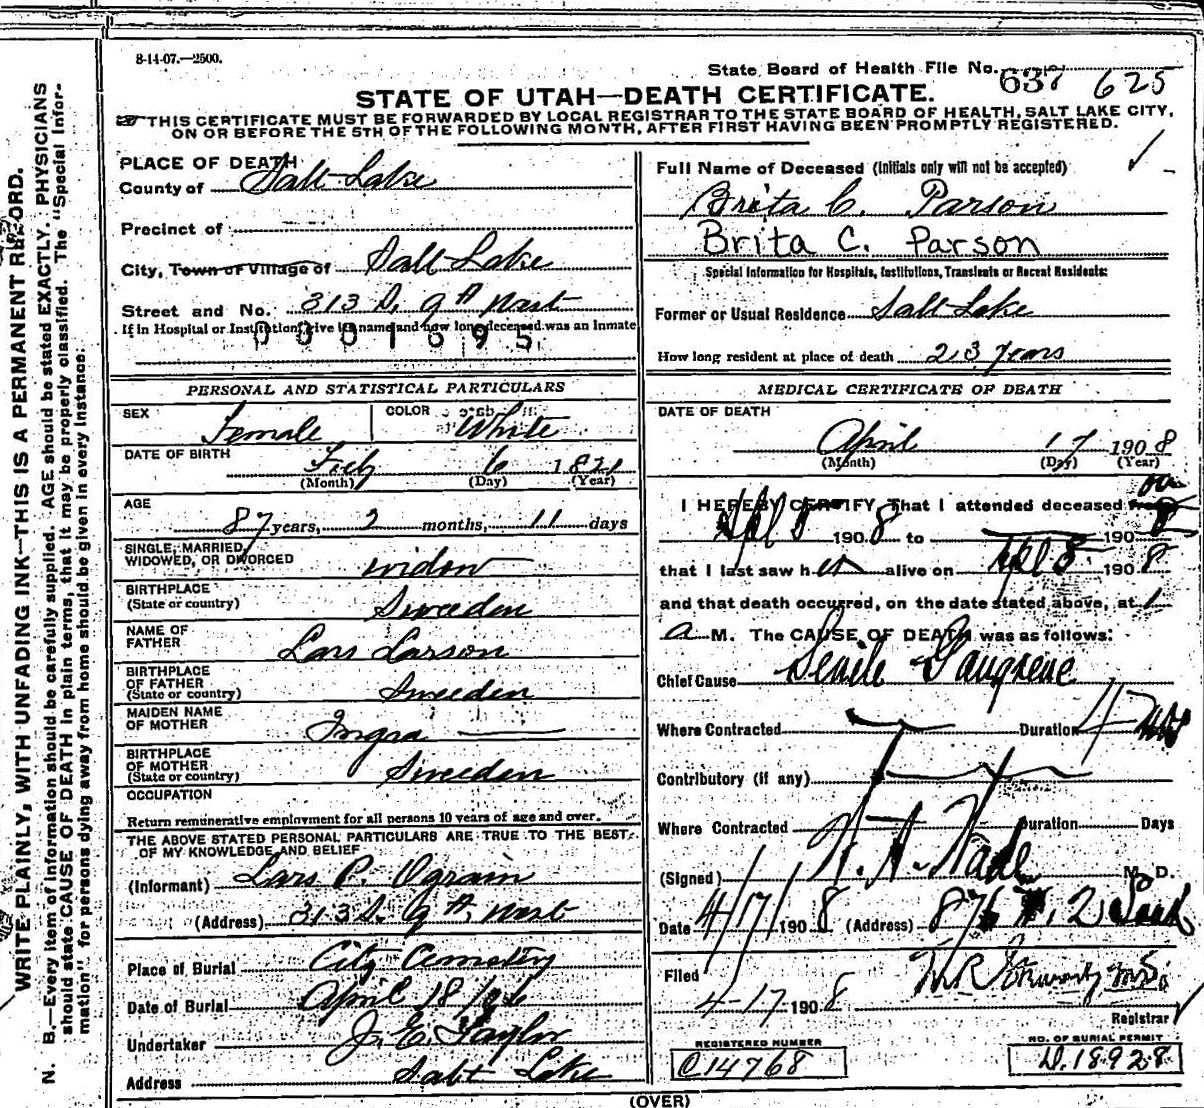 8-14-07.—2500.
State Board of Health File No. 637 625
STATE OF UTAH—DEATH CERTIFICATE.
THIS CERTIFICATE MUST BE FORWARDED BY LOCAL REGISTRAR TO THE STATE BOARD OF HEALTH, SALT LAKE CITY,
ON OR BEFORE THE 5TH OF THE FOLLOWING MONTH, AFTER FIRST HAVING BEEN PROMPTLY REGISTERED.
WRITE PLAINLY, WITH UNFADING INK—THIS IS A PERMANENT RECORD.
N. B.—Every item of information should be carefully supplied. AGE should be stated EXACTLY. PHYSICIANS
should state CAUSE OF DEATH in plain terms, that it may be properly classified. The "Special Infor-
mation" for persons dying away from home should be given in every instance.
PLACE OF DEATH
County of Salt Lake
Precinct of
City, Town or Village of Salt Lake
Street and No. 313 S. 9th West
If in Hospital or Institution, give its name and how long deceased was an inmate
0001695
PERSONAL AND STATISTICAL PARTICULARS
SEX Female COLOR White
DATE OF BIRTH Feb 6 1821
(Month) (Day) (Year)
AGE 87 years, 2 months, 11 days
SINGLE, MARRIED,
WIDOWED, OR DIVORCED widow
BIRTHPLACE
(State or country) Sweeden
NAME OF
FATHER Lars Larson
BIRTHPLACE
OF FATHER
(State or country) Sweeden
MAIDEN NAME
OF MOTHER Ingra
BIRTHPLACE
OF MOTHER
(State or country) Sweeden
OCCUPATION
Return remunerative employment for all persons 10 years of age and over.
THE ABOVE STATED PERSONAL PARTICULARS ARE TRUE TO THE BEST
OF MY KNOWLEDGE AND BELIEF
(Informant) Lars P. Ograin
(Address) 313 S. 9th West
Place of Burial City Cemetery
Date of Burial April 18
Undertaker J. E. Taylor
Address Salt Lake
Full Name of Deceased (Initials only will not be accepted)
Brita C. Parson
Brita C. Parson
Special Information for Hospitals, Institutions, Transients or Recent Residents:
Former or Usual Residence Salt Lake
How long resident at place of death 23 years
MEDICAL CERTIFICATE OF DEATH
DATE OF DEATH
April 17 1908
(Month) (Day) (Year)
I HEREBY CERTIFY That I attended deceased from on
Apl 8 1908 to 1908
that I last saw her alive on Apl 8 1908
and that death occurred, on the date stated above, at 1
a M. The CAUSE OF DEATH was as follows:
Chief Cause Senile Gangrene
Where Contracted Duration 4
Contributory (if any)
Where Contracted Duration Days
(Signed) M. D.
Date 4/17/1908 (Address)
Filed
4-17 1908
Registrar
REGISTERED NUMBER
C14768
NO. OF BURIAL PERMIT
D.18928
(OVER)